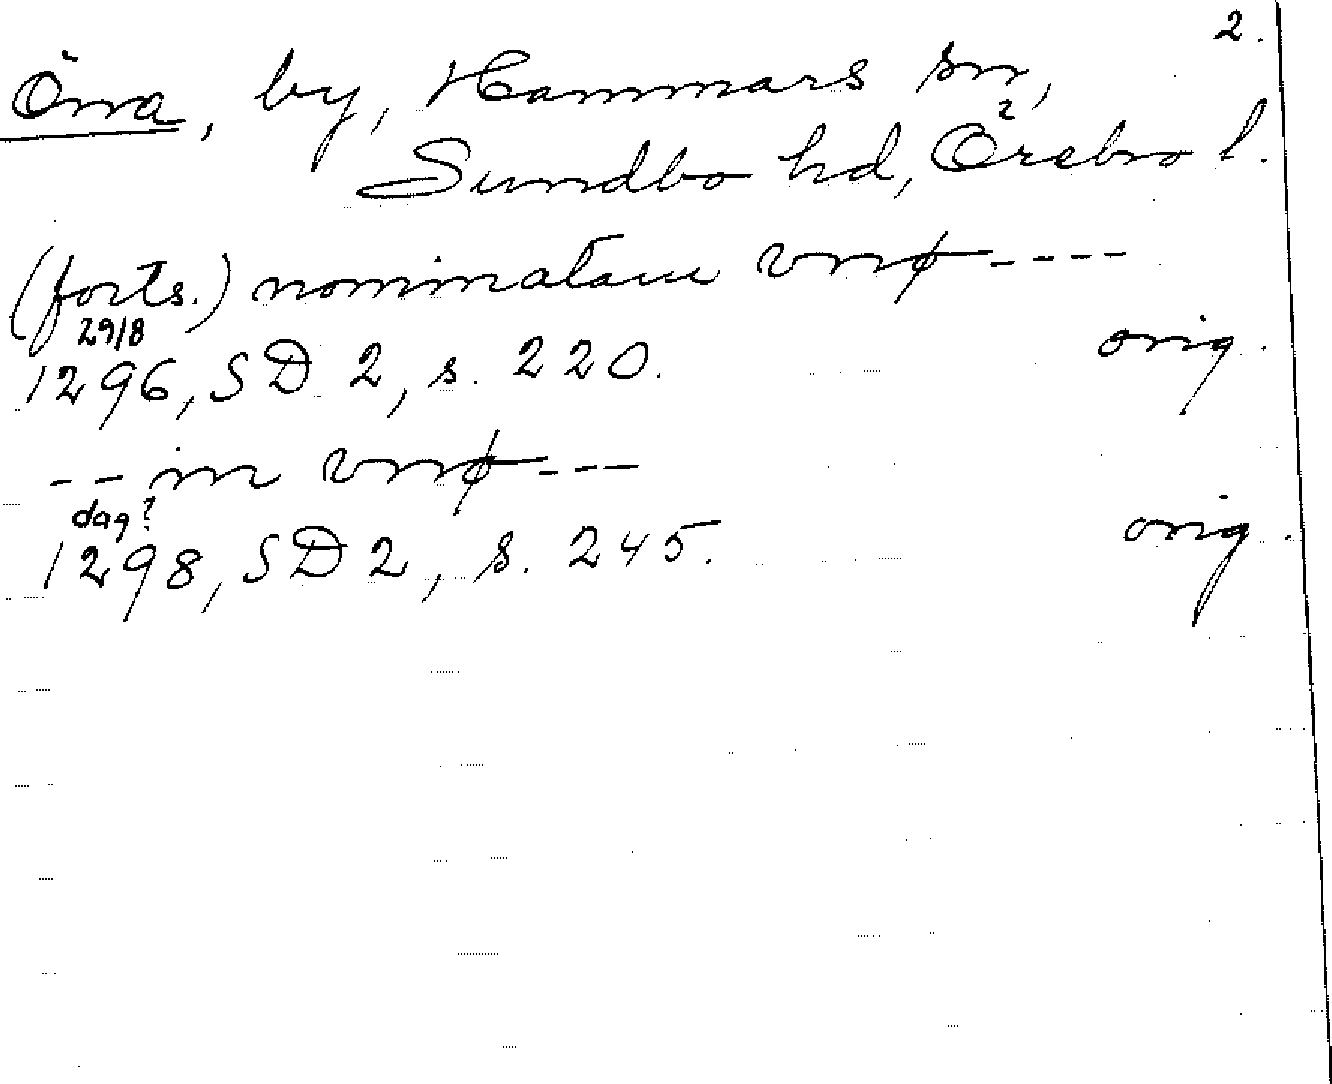 2.
Önna, by, Hammars sn,
Sundbo hd, Örebro l.
(forts.) nominatam vnnø ----
29/8
1296, SD 2, s. 220. orig.
-- in vnnø ---
dag?
1298, SD 2, s. 245. orig.